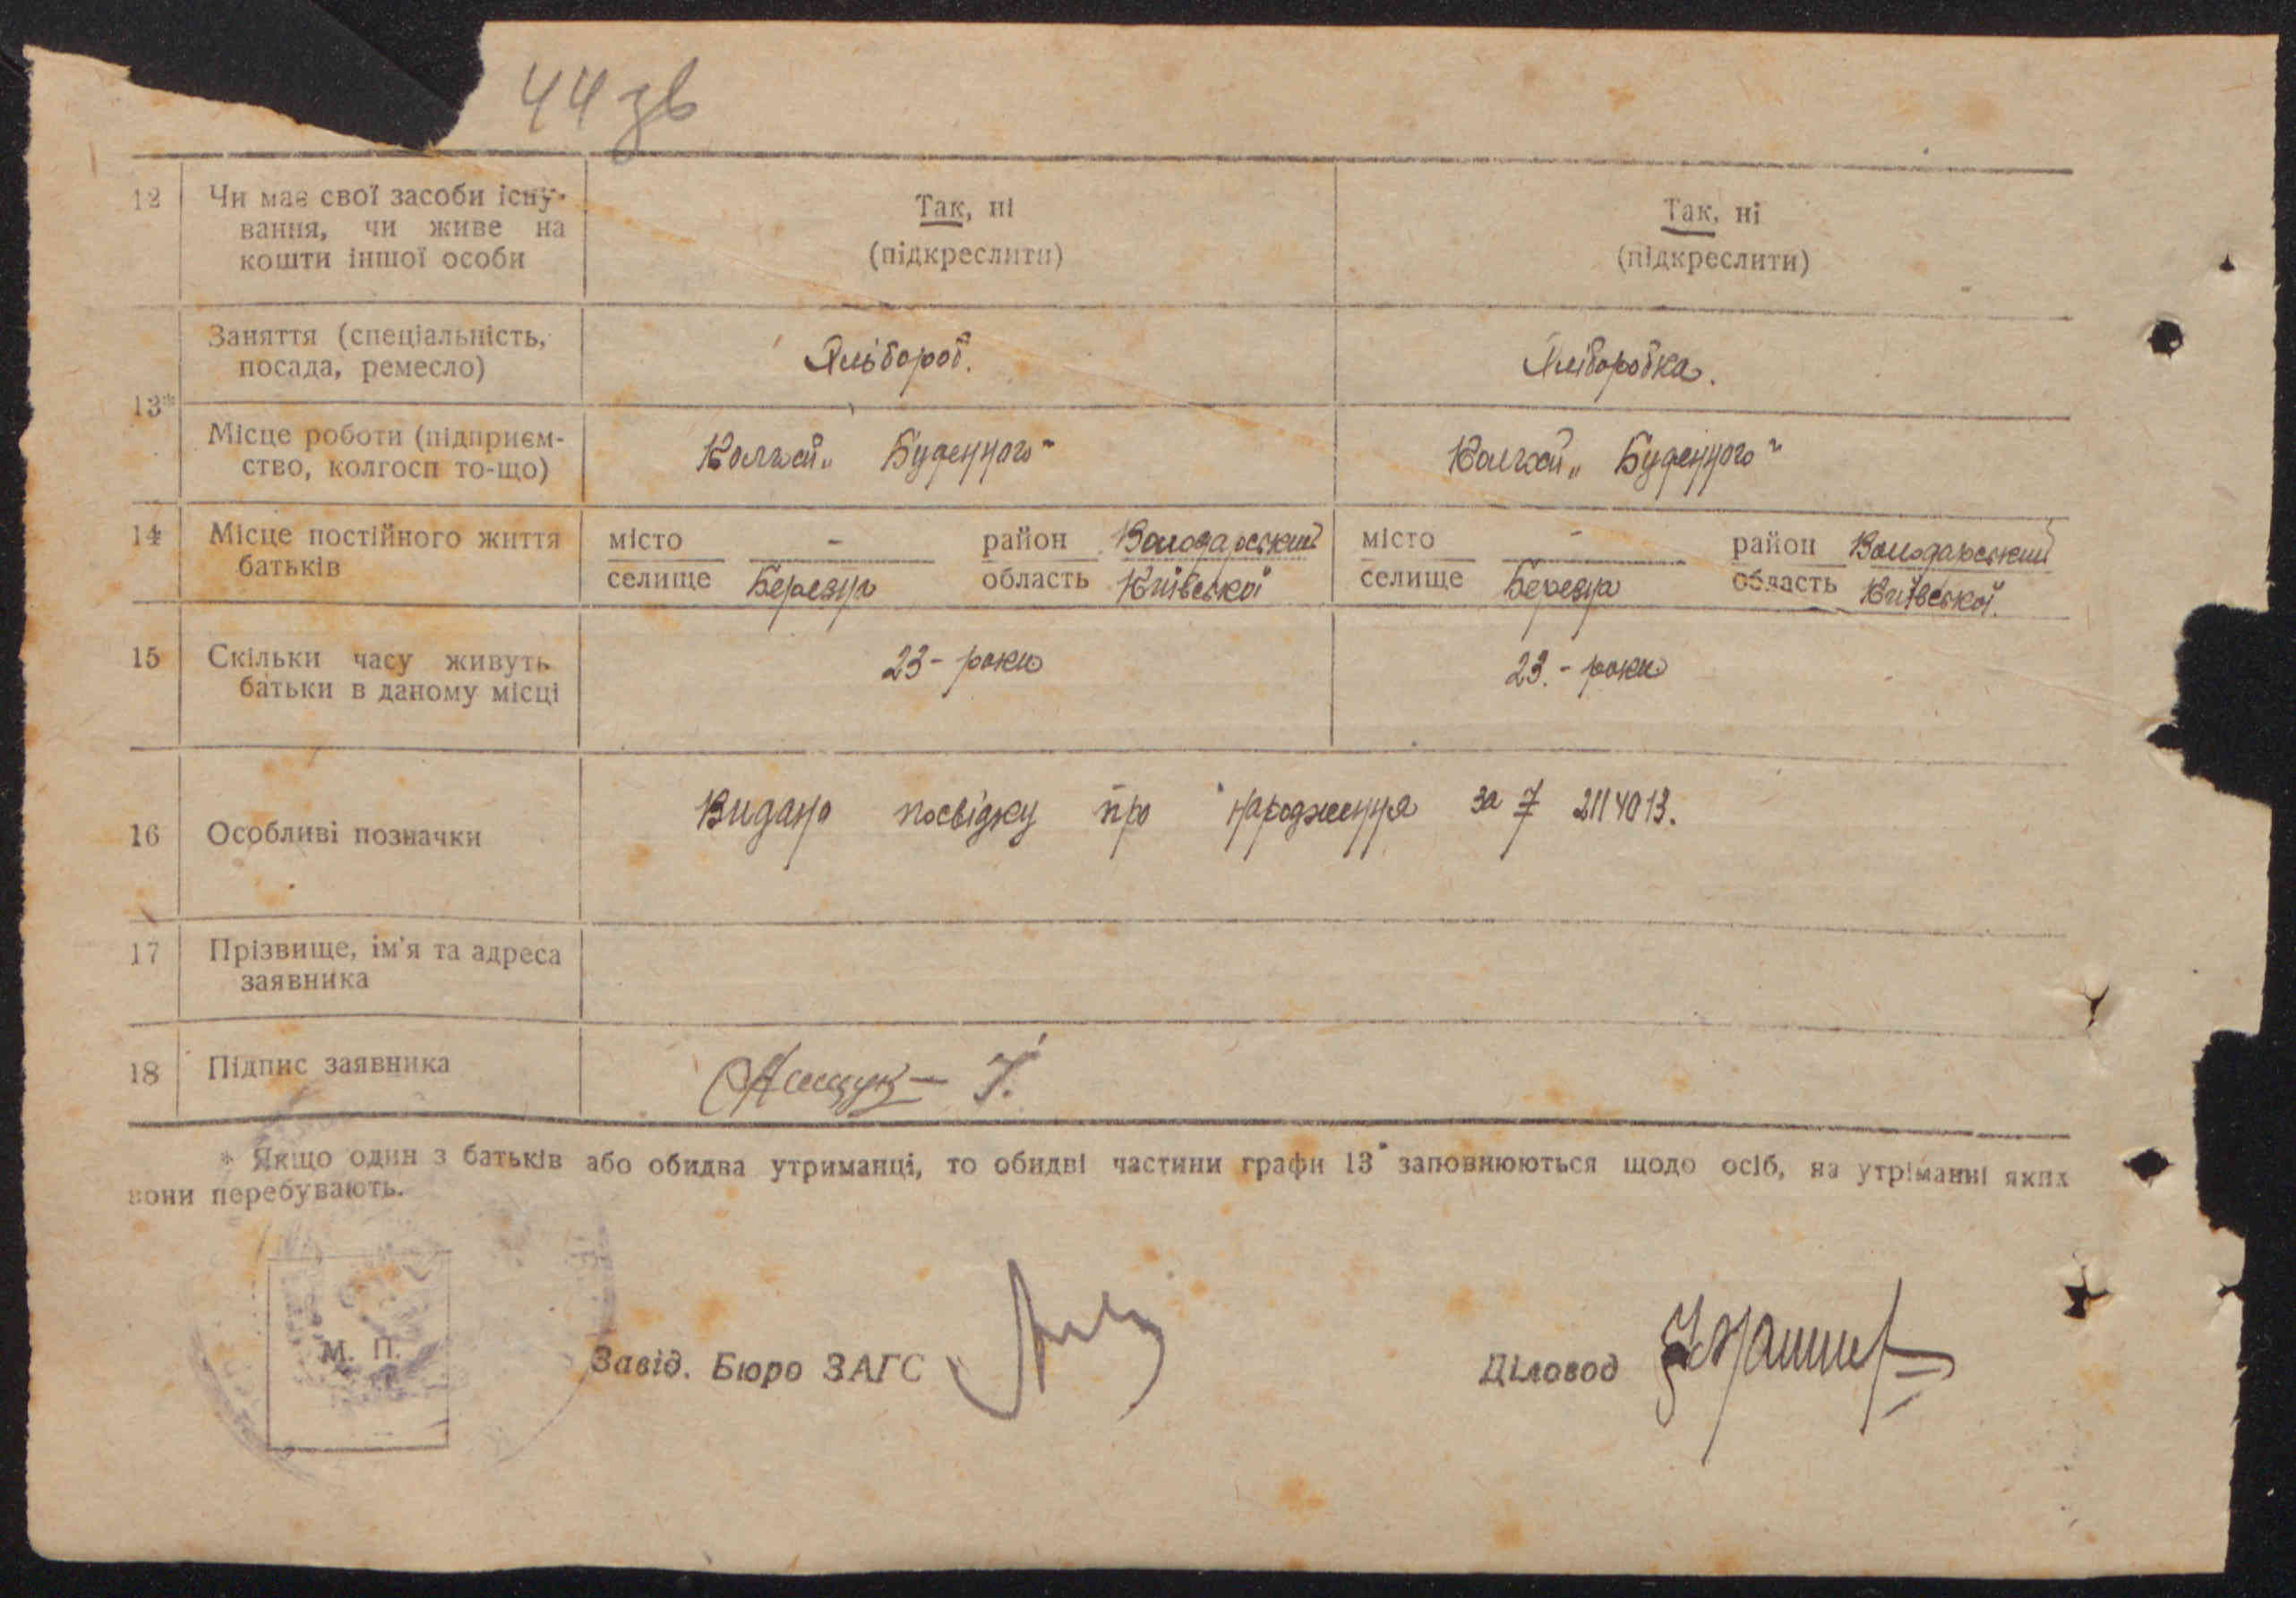 44 зв
12 Чи має свої засоби існу-
вання, чи живе на
кошти іншої особи
Так, ні
(підкреслити)
Так, ні
(підкреслити)
13*
Заняття (спеціальність,
посада, ремесло)
Хлібороб.
Хліборобка.
Місце роботи (підприєм-
ство, колгосп то-що)
Буденного"
Буденного"
14 Місце постійного життя
батьків
місто - район Володарський
селище Березна область Київської
місто - район Володарський
селище Березна область Київської.
15 Скільки часу живуть
батьки в даному місці
23 - роки
23. - роки
16 Особливі позначки
Видано посвідку про народження за 7 2114013.
17 Прізвище, ім'я та адреса
заявника
18 Підпис заявника
* Якщо один з батьків або обидва утриманці, то обидві частини графи 13* заповнюються щодо осіб, на утріманні яких
вони перебувають.
М. П.
Завід. Бюро ЗАГС
Діловод